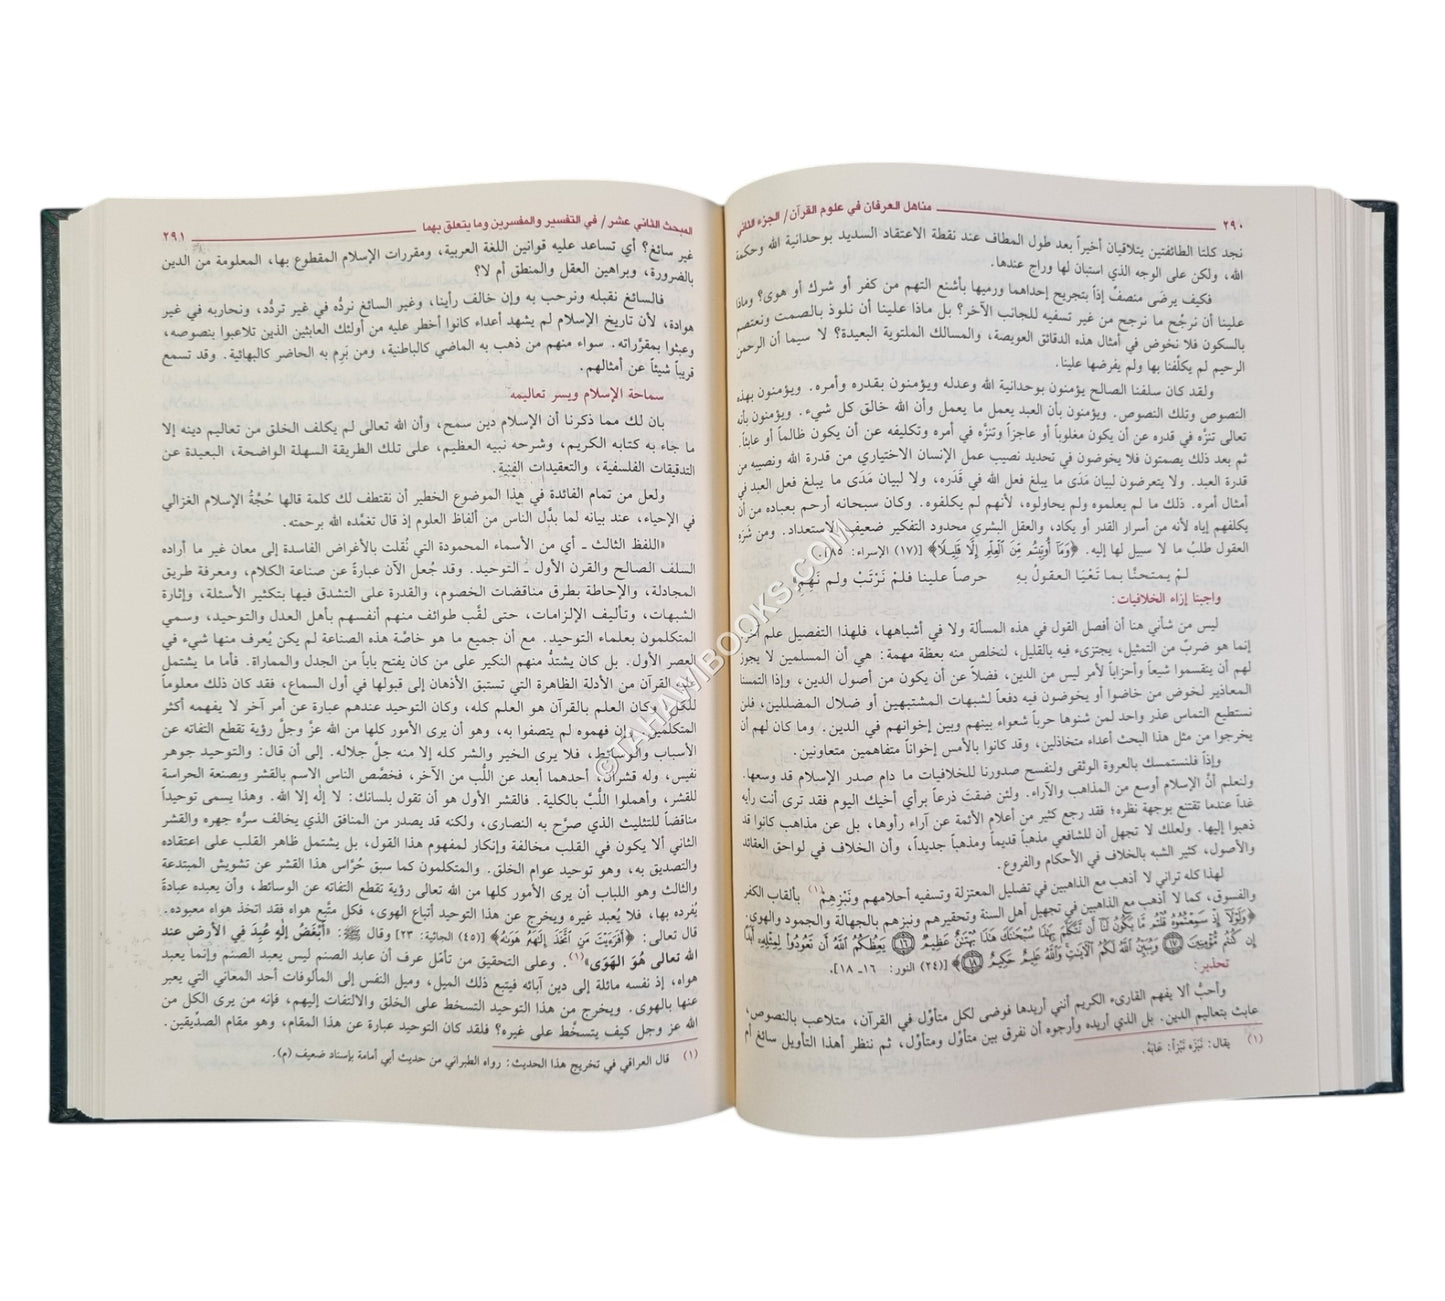 ٢٩٠ مناهل العرفان في علوم القرآن / الجزء الثاني
نجد كلتا الطائفتين يتلاقيان أخيراً بعد طول المطاف عند نقطة الاعتقاد السديد بوحدانية الله وحكمة
الله، ولكن على الوجه الذي استبان لها وراج عندها.
فكيف يرضى منصفٌ إذاً بتجريح إحداهما ورميها بأشنع التهم من كفر أو شرك أو هوى؟ وماذا
علينا أن نرجّح ما نرجح من غير تسفيه للجانب الآخر؟ بل ماذا علينا أن نلوذ بالصمت ونعتصم
بالسكون فلا نخوض في أمثال هذه الدقائق العويصة، والمسالك الملتوية البعيدة؟ لا سيما أن الرحمن
الرحيم لم يكلّفنا بها ولم يفرضها علينا.
ولقد كان سلفنا الصالح يؤمنون بوحدانية الله وعدله ويؤمنون بقدره وأمره. ويؤمنون بهذه
النصوص وتلك النصوص. ويؤمنون بأن العبد يعمل ما يعمل وأن الله خالق كل شيء. ويؤمنون بأنه
تعالى تنزَّه في قدره عن أن يكون مغلوباً أو عاجزاً وتنزَّه في أمره وتكليفه عن أن يكون ظالماً أو عابثاً.
ثم بعد ذلك يصمتون فلا يخوضون في تحديد نصيب عمل الإنسان الاختياري من قدرة الله ونصيبه من
قدرة العبد. ولا يتعرضون لبيان مَدَى ما يبلغ فعل الله في قَدَره، ولا لبيان مَدَى ما يبلغ فعل العبد في
أمثال أمره. ذلك ما لم يعلموه ولم يحاولوه، لأنهم لم يكلفوه. وكان سبحانه أرحم بعباده من أن
يكلفهم إياه لأنه من أسرار القدر أو يكاد، والعقل البشري محدود التفكير ضعيف الاستعداد. ومن شَرَه
العقول طلبُ ما لا سبيل لها إليه. ﴿وَمَآ أُوتِيتُم مِّنَ ٱلْعِلْمِ إِلَّا قَلِيلًا﴾ [(١٧) الإسراء: ٨٥].
لمْ يمتحنَّا بما تَعْيَا العقولُ بهِ حرصاً علينا فلمْ نَرْتَبْ ولم نَهِمِ
واجبنا إزاء الخلافيات:
ليس من شأني هنا أن أفصل القول في هذه المسألة ولا في أشباهها، فلهذا التفصيل علم آخر،
إنما هو ضربٌ من التمثيل، يجتزىء فيه بالقليل، لنخلص منه بعظة مهمة: هي أن المسلمين لا يجوز
لهم أن ينقسموا شيعاً وأحزاباً لأمر ليس من الدين، فضلاً عن أن يكون من أصول الدين، وإذا التمسنا
المعاذير لخوض من خاضوا أو يخوضون فيه دفعاً لشبهات المشتبهين أو ضلال المضللين، فلن
نستطيع التماس عذر واحد لمن شنوها حرباً شعواء بينهم وبين إخوانهم في الدين. وما كان لهم أن
يخرجوا من مثل هذا البحث أعداء متخاذلين، وقد كانوا بالأمس إخواناً متفاهمين متعاونين.
وإذاً فلنستمسك بالعروة الوثقى ولنفسح صدورنا للخلافيات ما دام صدر الإسلام قد وسعها.
ولنعلم أنَّ الإسلام أوسع من المذاهب والآراء. ولئن ضقتَ ذرعاً برأي أخيك اليوم فقد ترى أنت رأيه
غداً عندما تقتنع بوجهة نظره؛ فقد رجع كثير من أعلام الأئمة عن آراء رأوها، بل عن مذاهب كانوا قد
ذهبوا إليها. ولعلك لا تجهل أن للشافعي مذهباً قديماً ومذهباً جديداً، وأن الخلاف في لواحق العقائد
والأصول، كثير الشبه بالخلاف في الأحكام والفروع.
لهذا كله تراني لا أذهب مع الذاهبين في تضليل المعتزلة وتسفيه أحلامهم ونَبْزِهِمْ(١) بألقاب الكفر
والفسوق، كما لا أذهب مع الذاهبين في تجهيل أهل السنة وتحقيرهم ونبزهم بالجهالة والجمود والهوى.
﴿وَلَوْلَآ إِذْ سَمِعْتُمُوهُ قُلْتُم مَّا يَكُونُ لَنَآ أَن نَّتَكَلَّمَ بِهَٰذَا سُبْحَٰنَكَ هَٰذَا بُهْتَٰنٌ عَظِيمٌ ﴿١٦﴾ يَعِظُكُمُ ٱللَّهُ أَن تَعُودُوا۟ لِمِثْلِهِۦٓ أَبَدًا
إِن كُنتُم مُّؤْمِنِينَ ﴿١٧﴾ وَيُبَيِّنُ ٱللَّهُ لَكُمُ ٱلْءَايَٰتِ وَٱللَّهُ عَلِيمٌ حَكِيمٌ ﴿١٨﴾﴾ [(٢٤) النور: ١٦ـ ١٨].
تحذير:
وأحبُّ ألا يفهم القارىء الكريم أنني أريدها فوضى لكل متأوّل في القرآن، متلاعب بالنصوص،
عابث بتعاليم الدين. بل الذي أريده وأرجوه أن نفرق بين متأوّل ومتأوّل، ثم ننظر أهذا التأويل سائغ أم
(١) يقال: نَبَزَه نَبْزاً: عَابَهُ.
المبحث الثاني عشر / في التفسير والمفسرين وما يتعلق بهما ٢٩١
غير سائغ؟ أي تساعد عليه قوانين اللغة العربية، ومقررات الإسلام المقطوع بها، المعلومة من الدين
بالضرورة، وبراهين العقل والمنطق أم لا؟
فالسائغ نقبله ونرحب به وإن خالف رأينا، وغير السائغ نردُّه في غير تردُّد، ونحاربه في غير
هوادة، لأن تاريخ الإسلام لم يشهد أعداء كانوا أخطر عليه من أولئك العابثين الذين تلاعبوا بنصوصه،
وعبثوا بمقرَّراته. سواء منهم من ذهب به الماضي كالباطنية، ومن بَرِم به الحاضر كالبهائية. وقد تسمع
قريباً شيئاً عن أمثالهم.
سماحة الإسلام ويسر تعاليمه
بان لك مما ذكرنا أن الإسلام دين سمح، وأن الله تعالى لم يكلف الخلق من تعاليم دينه إلا
ما جاء به كتابه الكريم، وشرحه نبيه العظيم، على تلك الطريقة السهلة الواضحة، البعيدة عن
التدقيقات الفلسفية، والتعقيدات الفنية.
ولعل من تمام الفائدة في هذا الموضوع الخطير أن نقتطف لك كلمة قالها حُجَّةُ الإسلام الغزالي
في الإحياء، عند بيانه لما بدَّل الناس من ألفاظ العلوم إذ قال تغمَّده الله برحمته.
«اللفظ الثالث ـ أي من الأسماء المحمودة التي نُقلت بالأغراض الفاسدة إلى معان غير ما أراده
السلف الصالح والقرن الأول ـ التوحيد. وقد جُعل الآن عبارةً عن صناعة الكلام، ومعرفة طريق
المجادلة، والإحاطة بطرق مناقضات الخصوم، والقدرة على التشدق فيها بتكثير الأسئلة، وإثارة
الشبهات، وتأليف الإلزامات، حتى لقَّب طوائف منهم أنفسهم بأهل العدل والتوحيد، وسمي
المتكلمون بعلماء التوحيد. مع أن جميع ما هو خاصَّة هذه الصناعة لم يكن يُعرف منها شيء في
العصر الأول. بل كان يشتدُّ منهم النكير على من كان يفتح باباً من الجدل والمماراة. فأما ما يشتمل
عليه القرآن من الأدلة الظاهرة التي تستبق الأذهان إلى قبولها في أول السماع، فقد كان ذلك معلوماً
للكل. وكان العلم بالقرآن هو العلم كله، وكان التوحيد عندهم عبارة عن أمر آخر لا يفهمه أكثر
المتكلمين. وإن فهموه لم يتصفوا به، وهو أن يرى الأمور كلها من الله عزَّ وجلَّ رؤية تقطع التفاته عن
الأسباب والوسائط، فلا يرى الخير والشر كله إلا منه جلَّ جلاله. إلى أن قال: والتوحيد جوهر
نفيس، وله قشران، أحدهما أبعد عن اللُّب من الآخر، فخصَّص الناس الاسم بالقشر وبصنعة الحراسة
للقشر، وأهملوا اللُّبَّ بالكلية. فالقشر الأول هو أن تقول بلسانك: لا إله إلا الله. وهذا يسمى توحيداً
مناقضاً للتثليث الذي صرَّح به النصارى، ولكنه قد يصدر من المنافق الذي يخالف سرَّه جهره والقشر
الثاني ألا يكون في القلب مخالفة وإنكار لمفهوم هذا القول، بل يشتمل ظاهر القلب على اعتقاده
والتصديق به، وهو توحيد عوام الخلق. والمتكلمون كما سبق حُرَّاس هذا القشر عن تشويش المبتدعة
والثالث وهو اللباب أن يرى الأمور كلها من الله تعالى رؤية تقطع التفاته عن الوسائط، وأن يعبده عبادةً
يُفرده بها، فلا يُعبد غيره ويخرج عن هذا التوحيد أتباع الهوى، فكل متَّبع هواه فقد اتخذ هواه معبوده.
قال تعالى: ﴿أَفَرَءَيْتَ مَنِ ٱتَّخَذَ إِلَٰهَهُۥ هَوَىٰهُ﴾ [(٤٥) الجاثية: ٢٣] وقال ﷺ: «أَبْغَضُ إلٰهٍ عُبِدَ فِي الأَرضِ عند
الله تعالى هُوَ الهَوَى»(١). وعلى التحقيق من تأمَّل عرف أن عابد الصنم ليس يعبد الصنم وإنما يعبد
هواه، إذ نفسه مائلة إلى دين آبائه فيتبع ذلك الميل، وميل النفس إلى المألوفات أحد المعاني التي يعبر
عنها بالهوى. ويخرج من هذا التوحيد التسخط على الخلق والالتفات إليهم، فإنه من يرى الكل من
الله عز وجل كيف يتسخَّط على غيره؟ فلقد كان التوحيد عبارة عن هذا المقام، وهو مقام الصدِّيقين.
(١) قال العراقي في تخريج هذا الحديث: رواه الطبراني من حديث أبي أمامة بإسناد ضعيف (م).
©TAHAWIBOOKS.COM